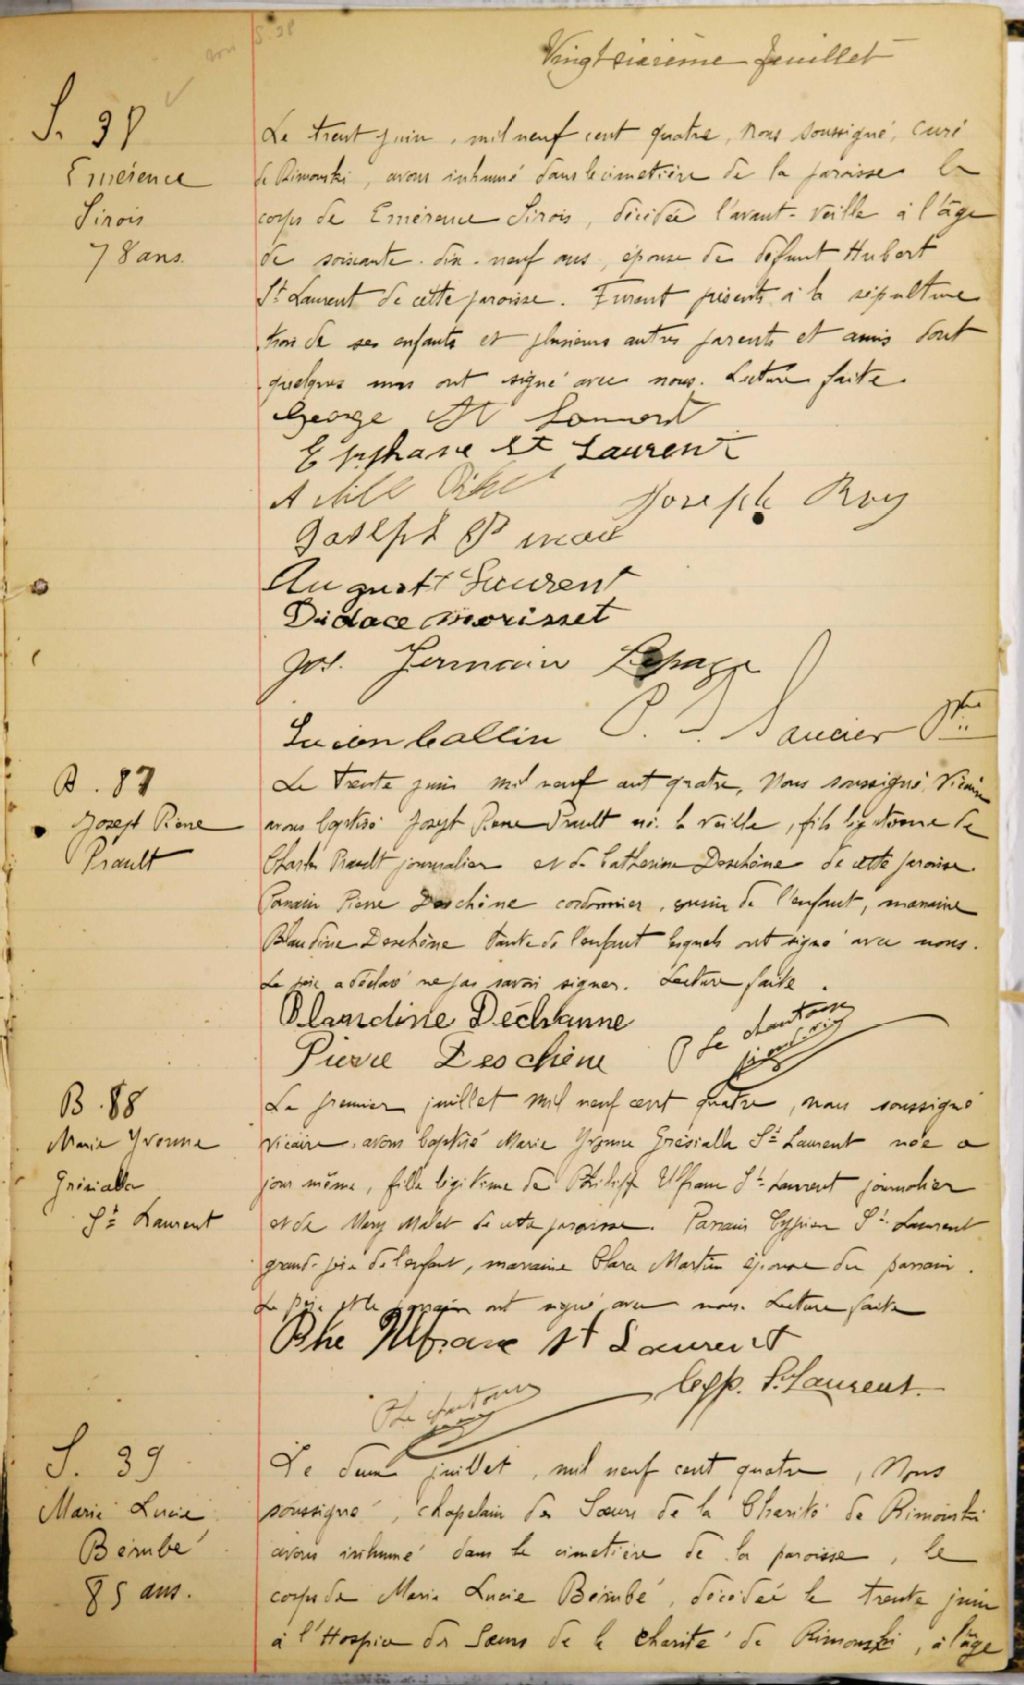 Vingt sixième feuillet
S. 38
Emérence
Sirois
78 ans.
Le trent juin, mil neuf cent quatre, Nous soussigné, curé
de Rimouski, avons inhumé dans le cimetière de la paroisse le
corps de Emérence Sirois, décédée l'avant-veille à l'âge
de soixante-dix-neuf ans, épouse de défunt Hubert
St Laurent de cette paroisse. Furent présents à la sépulture
trois de ses enfants et plusieurs autres parents et amis dont
quelques uns ont signé avec nous. Lecture faite
George St Laurent
Epiphane St Laurent
Joseph Roy
Joseph
August St Laurent
Didace Morisset
Jos. Germain Lepage
Lucien Collin
P. S. Saucier Ptre
B. 87
Joseph Pierre
Prault
Le trente juin mil neuf cent quatre, Nous soussigné Vicaire
avons baptisé Joseph Pierre Prault né la veille, fils légitime de
Charles Prault journalier et de Catherine Deschêne de cette paroisse.
Parrain Pierre Deschêne cordonnier, cousin de l'enfant, marraine
Blandine Deschêne tante de l'enfant lesquels ont signé avec nous.
Le père a déclaré ne pas savoir signer. Lecture faite.
Blandine Déchanne
Pierre Deschêne
B. 88
Marie Yvonne
Grésialla
St Laurent
Le premier juillet mil neuf cent quatre, nous soussigné
vicaire, avons baptisé Marie Yvonne Grésialla St Laurent née ce
jour même, fille légitime de Philipp Ulfranc St Laurent journalier
et de Mary Malet de cette paroisse. Parrain Cyprien St Laurent
grand-père de l'enfant, marraine Clara Martin épouse du parrain.
Le père et le parrain ont signé avec nous. Lecture faite
Phe Ulfranc St Laurent
Cyp. St Laurent
S. 39
Marie Lucie
Bérubé
85 ans.
Le deux juillet, mil neuf cent quatre, Nous
soussigné, chapelain des Soeurs de la Charité de Rimouski
avons inhumé dans le cimetière de la paroisse, le
corps de Marie Lucie Bérubé, décédée le trente juin
à l'Hospice des Soeurs de la charité de Rimouski, à l'âge